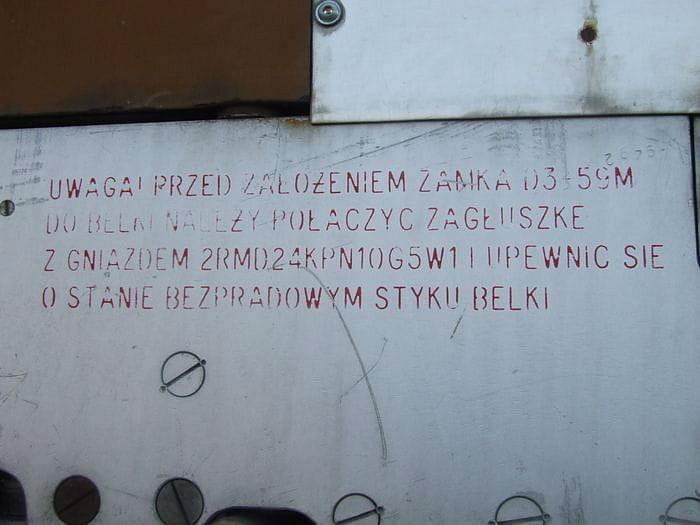 UWAGA! PRZED ZAŁOŻENIEM ZAMKA D3-59M
DO BELKI NALEŻY POŁACZYC ZAGŁUSZKE
Z GNIAZDEM 2RMD24KPN10G5W1 I UPEWNIC SIE
O STANIE BEZPRADOWYM STYKU BELKI